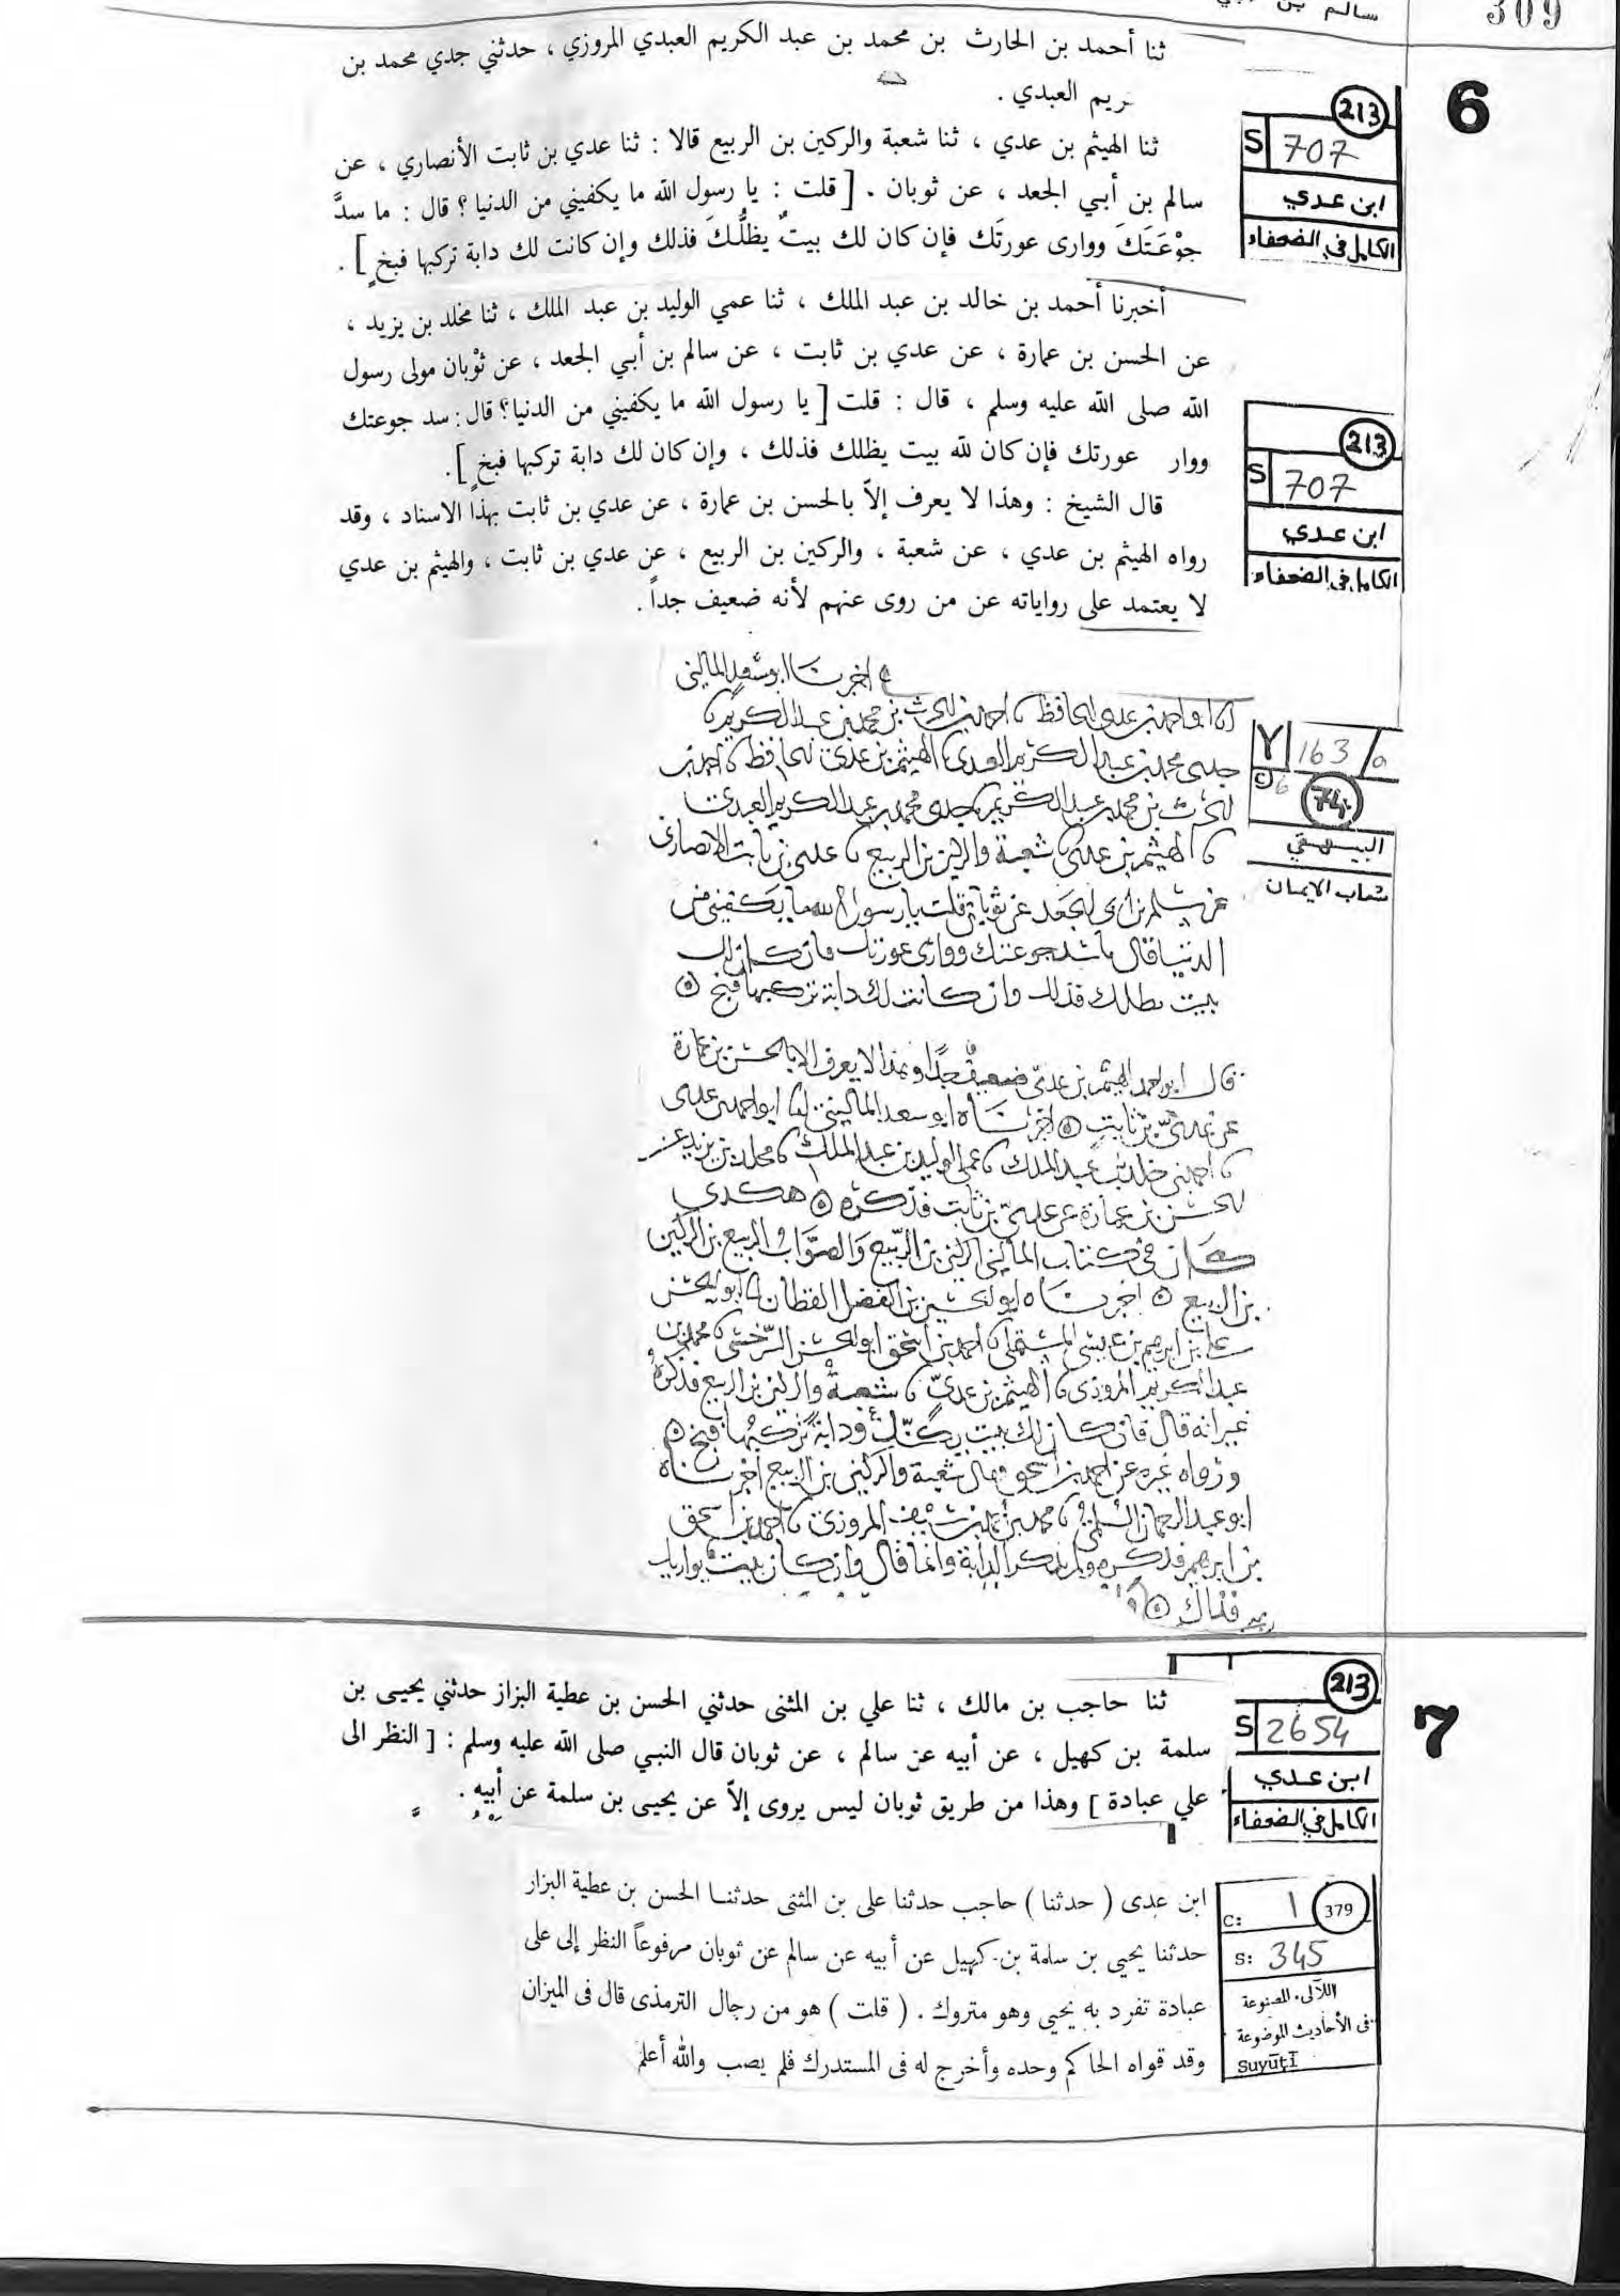 309
سالم بن
ثنا أحمد بن الحارث بن محمد بن عبد الكريم العبدي المروزي ، حدثني جدي محمد بن
ريم العبدي .
6
213
S 707
ابن عدي
الكامل في الضعفاء
ثنا الهيثم بن عدي ، ثنا شعبة والركين بن الربيع قالا : ثنا عدي بن ثابت الأنصاري ، عن
سالم بن أبي الجعد ، عن ثوبان . [ قلت : يا رسول الله ما يكفيني من الدنيا ؟ قال : ما سدَّ
جوْعَتَكَ ووارى عورتَك فإن كان لك بيتٌ يظلُّكَ فذلك وإن كانت لك دابة تركبها فبخٍ ] .
أخبرنا أحمد بن خالد بن عبد الملك ، ثنا عمي الوليد بن عبد الملك ، ثنا مخلد بن يزيد ،
عن الحسن بن عمارة ، عن عدي بن ثابت ، عن سالم بن أبي الجعد ، عن ثوْبان مولى رسول
الله صلى الله عليه وسلم ، قال : قلت [ يا رسول الله ما يكفيني من الدنيا؟ قال : سد جوعتك
ووار عورتك فإن كان لله بيت يظلك فذلك ، وإن كان لك دابة تركبها فبخٍ ] .
213
S 707
ابن عدي
الكامل في الضعفاء
قال الشيخ : وهذا لا يعرف إلاّ بالحسن بن عمارة ، عن عدي بن ثابت بهذا الاسناد ، وقد
رواه الهيثم بن عدي ، عن شعبة ، والركين بن الربيع ، عن عدي بن ثابت ، والهيثم بن عدي
لا يعتمد على رواياته عن من روى عنهم لأنه ضعيف جداً .
اخبرنا ابو سعد الماليني
انا ابو احمد بن عدي الحافظ احمد بن الحرث بن محمد بن عبد الكريم
جدي محمد بن عبد الكريم العبدي الهيثم بن عدي الحافظ احمد بن
الحرث بن محمد بن عبد الكريم جدي محمد بن عبد الكريم العبدي
الهيثم بن عدي شعبة والركين بن الربيع عدي بن ثابت الانصاري
عن سلم بن ابي الجعد عن ثوبان قلت يا رسول الله ما يكفيني من
الدنيا قال ما سد جوعتك ووارى عورتك فان كان لك
بيت يظلك فذلك وان كانت لك دابة تركبها فبخ
Y 163/a
C 6
744
البيهقي
شعاب الايمان
قال ابو احمد الهيثم بن عدي ضعيف جدا وهذا لا يعرف الا بالحسن بن عمارة
عن عدي بن ثابت اخبرناه ابو سعد الماليني ابو احمد بن عدي
احمد بن خلد بن عبد الملك عمي الوليد بن عبد الملك مخلد بن يزيد عن
الحسن بن عمارة عن عدي بن ثابت فذكره هكذي
كان في كتاب الماليني الركين بن الربيع والصواب الربيع بن الركين
بن الربيع اخبرناه ابو الحسين بن الفضل القطان ابو الحسن
علي بن ابرهيم بن عيسى المستملي احمد بن اسحق ابو الحسن السرخسي محمد بن
عبد الكريم المروزي الهيثم بن عدي شعبة والركين بن الربيع فذكره
غير انه قال فان كان لك بيت يكنك ودابة تركبها فبخ
ورواه غيره عن احمد بن اسحق فقال شعبة والركين بن الربيع اخبرناه
ابو عبد الرحمان السلمي محمد بن المروزي احمد بن اسحق
بن ابرهيم فذكره ولم يذكر الدابة وانما قال وان كان بيت يواريك
فذاك
7
213
S 2654
ابن عدي
الكامل في الضعفاء
ثنا حاجب بن مالك ، ثنا علي بن المثنى حدثني الحسن بن عطية البزاز حدثني يحيى بن
سلمة بن كهيل ، عن أبيه عن سالم ، عن ثوبان قال النبي صلى الله عليه وسلم : [ النظر الى
علي عبادة ] وهذا من طريق ثوبان ليس يروى إلاّ عن يحيى بن سلمة عن أبيه .
C: 1 379
S: 345
اللآلىء المصنوعة
فى الأحاديث الموضوعة
Suyūṭī
ابن عدى ( حدثنا ) حاجب حدثنا على بن المثنى حدثنا الحسن بن عطية البزار
حدثنا يحيى بن سلمة بن كهيل عن أبيه عن سالم عن ثوبان مرفوعاً النظر إلى على
عبادة تفرد به يحيى وهو متروك . ( قلت ) هو من رجال الترمذى قال فى الميزان
وقد قواه الحاكم وحده وأخرج له فى المستدرك فلم يصب والله أعلم